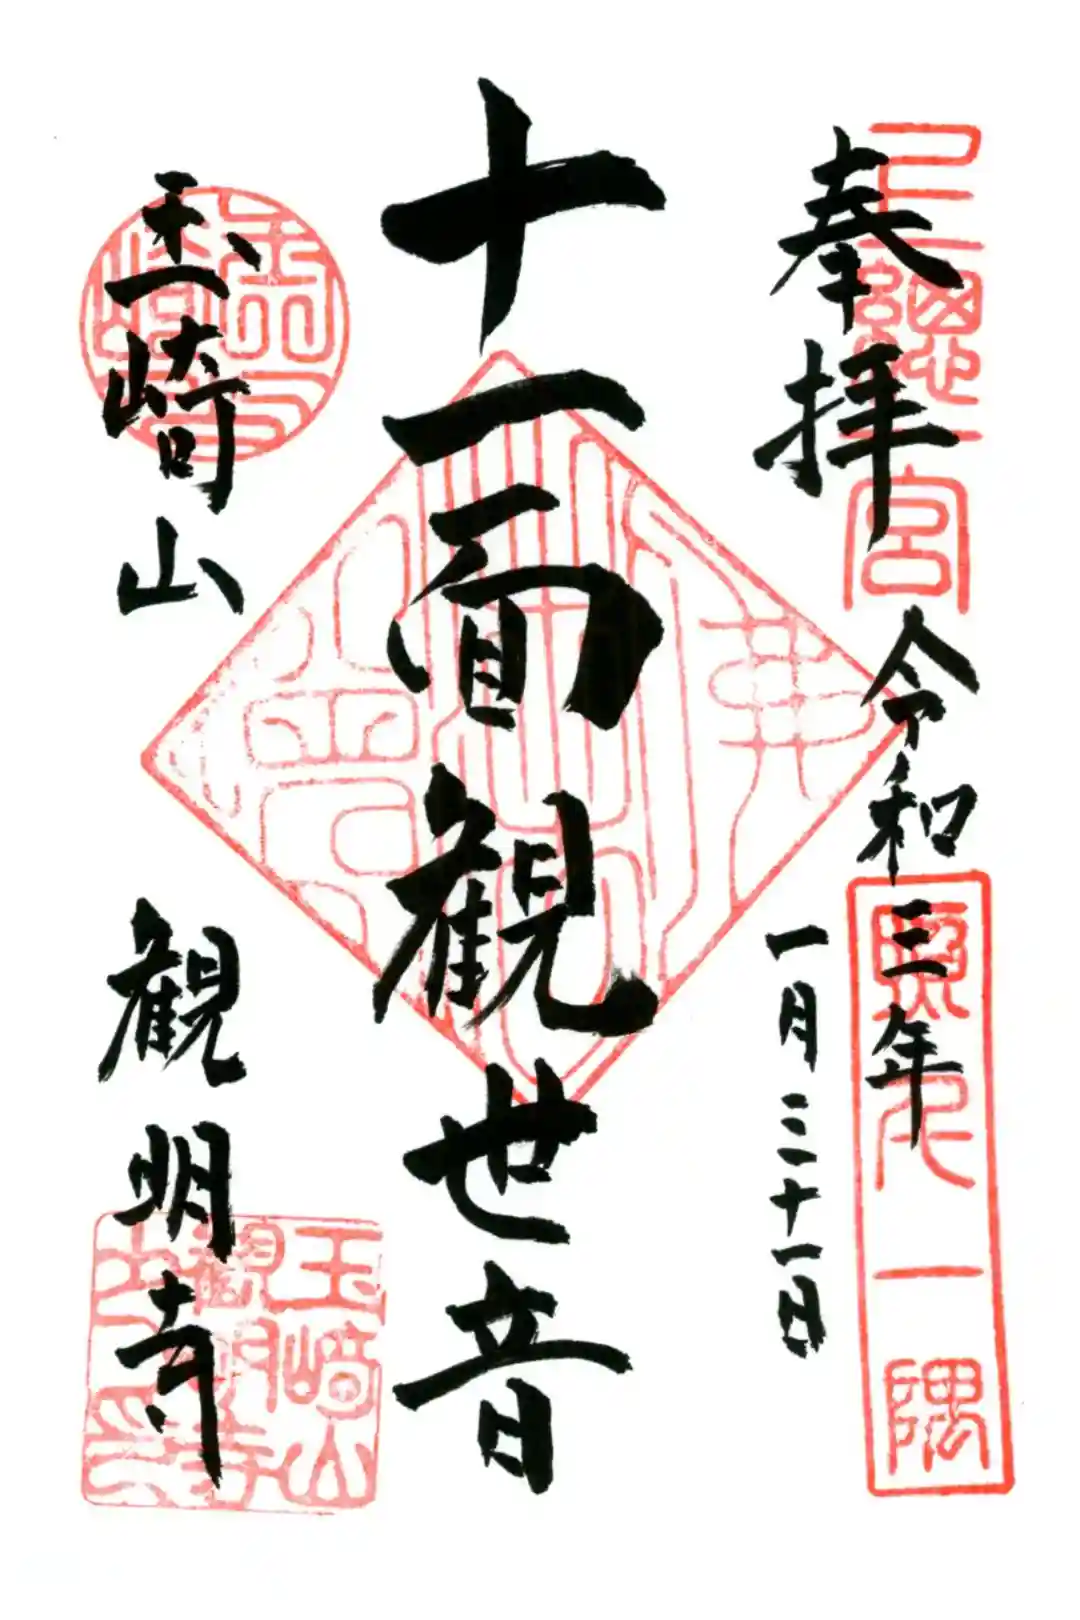 奉拝
上總一宮
令和三年
一月三十一日
照于一隅
十一面観世音
玉崎山
観明寺
玉崎山
観明寺